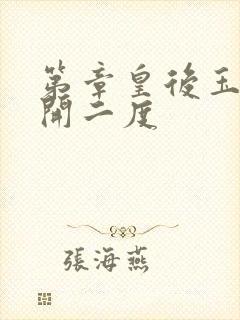 第章皇後玉
開二度
張海燕